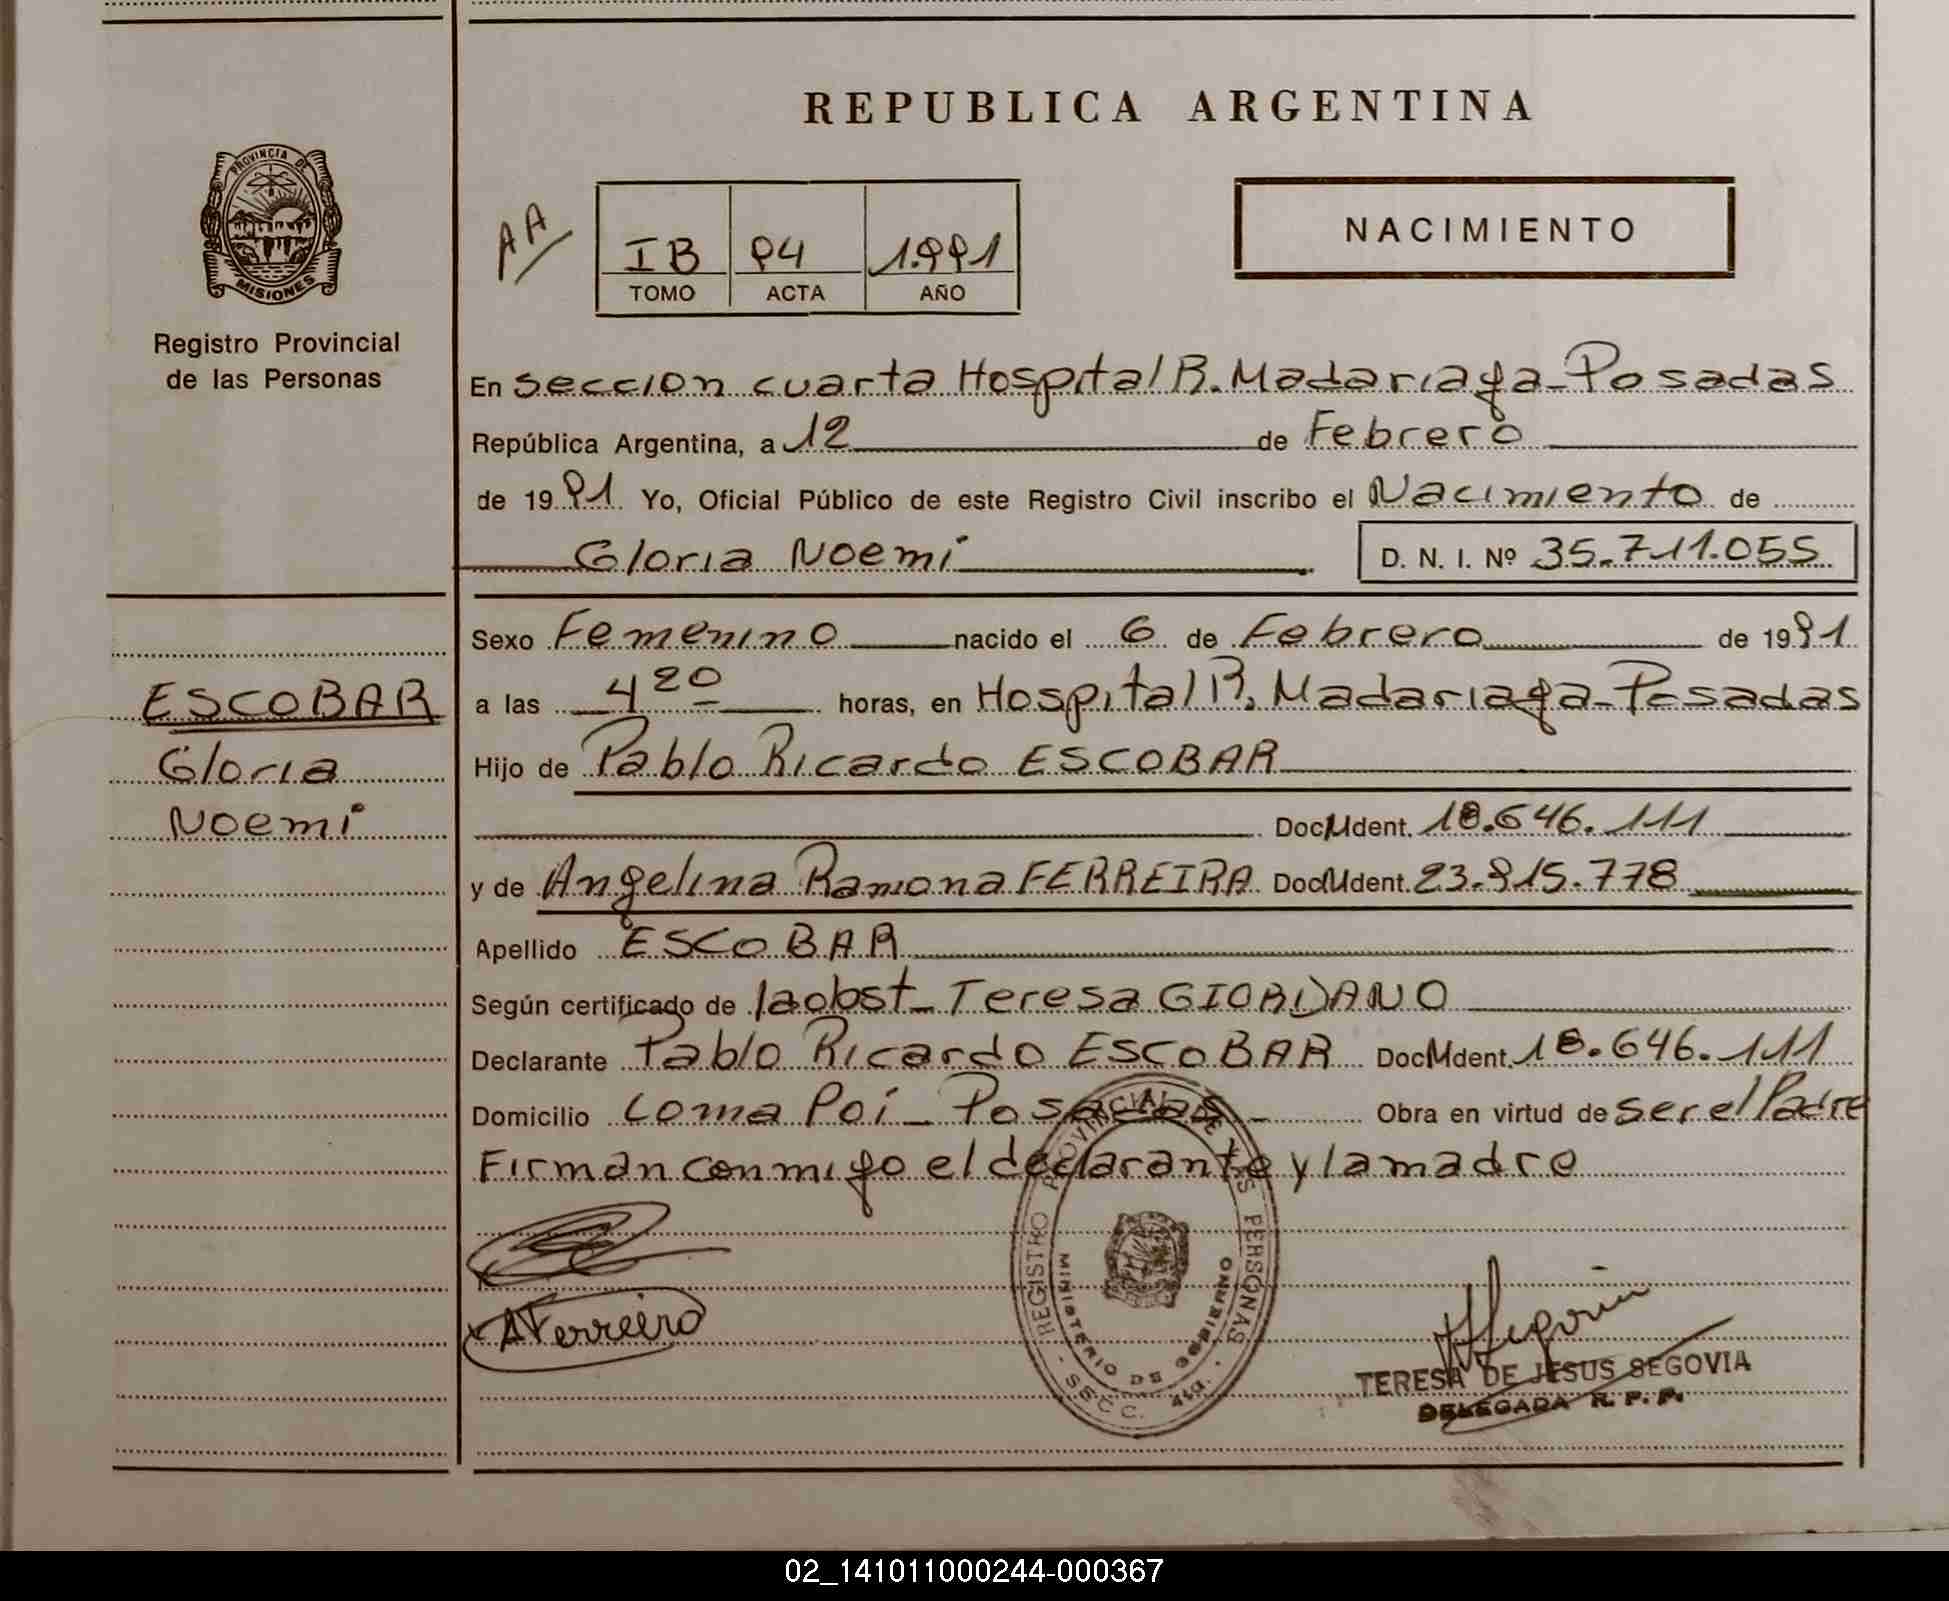 REPUBLICA ARGENTINA
PROVINCIA DE
MISIONES
Registro Provincial
de las Personas
AA
IB 94 1.991
TOMO ACTA AÑO
NACIMIENTO
En seccion cuarta Hospital R. Madariaga - Posadas
República Argentina, a 12 de Febrero
de 1991. Yo, Oficial Público de este Registro Civil inscribo el Nacimiento de
Gloria Noemi D. N. I. Nº 35.711.055
Sexo Femenino nacido el 6 de Febrero de 1991
ESCOBAR
Gloria
Noemi
a las 4 20 horas, en Hospital R. Madariaga - Posadas
Hijo de Pablo Ricardo ESCOBAR
Doc. M Ident. 18.646.111
y de Angelina Ramona FERREIRA Doc. M Ident. 23.915.778
Apellido ESCOBAR
Según certificado de la obst - Teresa GIORDANO
Declarante Pablo Ricardo ESCOBAR Doc. M Ident. 18.646.111
Domicilio Loma Poi - Posadas - Obra en virtud de ser el Padre
Firman conmigo el declarante y la madre
REGISTRO PROVINCIAL DE LAS PERSONAS
MINISTERIO DE GOBIERNO
- SECC. 4ta. -
AFerreira
TERESA DE JESUS SEGOVIA
DELEGADA R. P. P.
02_141011000244-000367